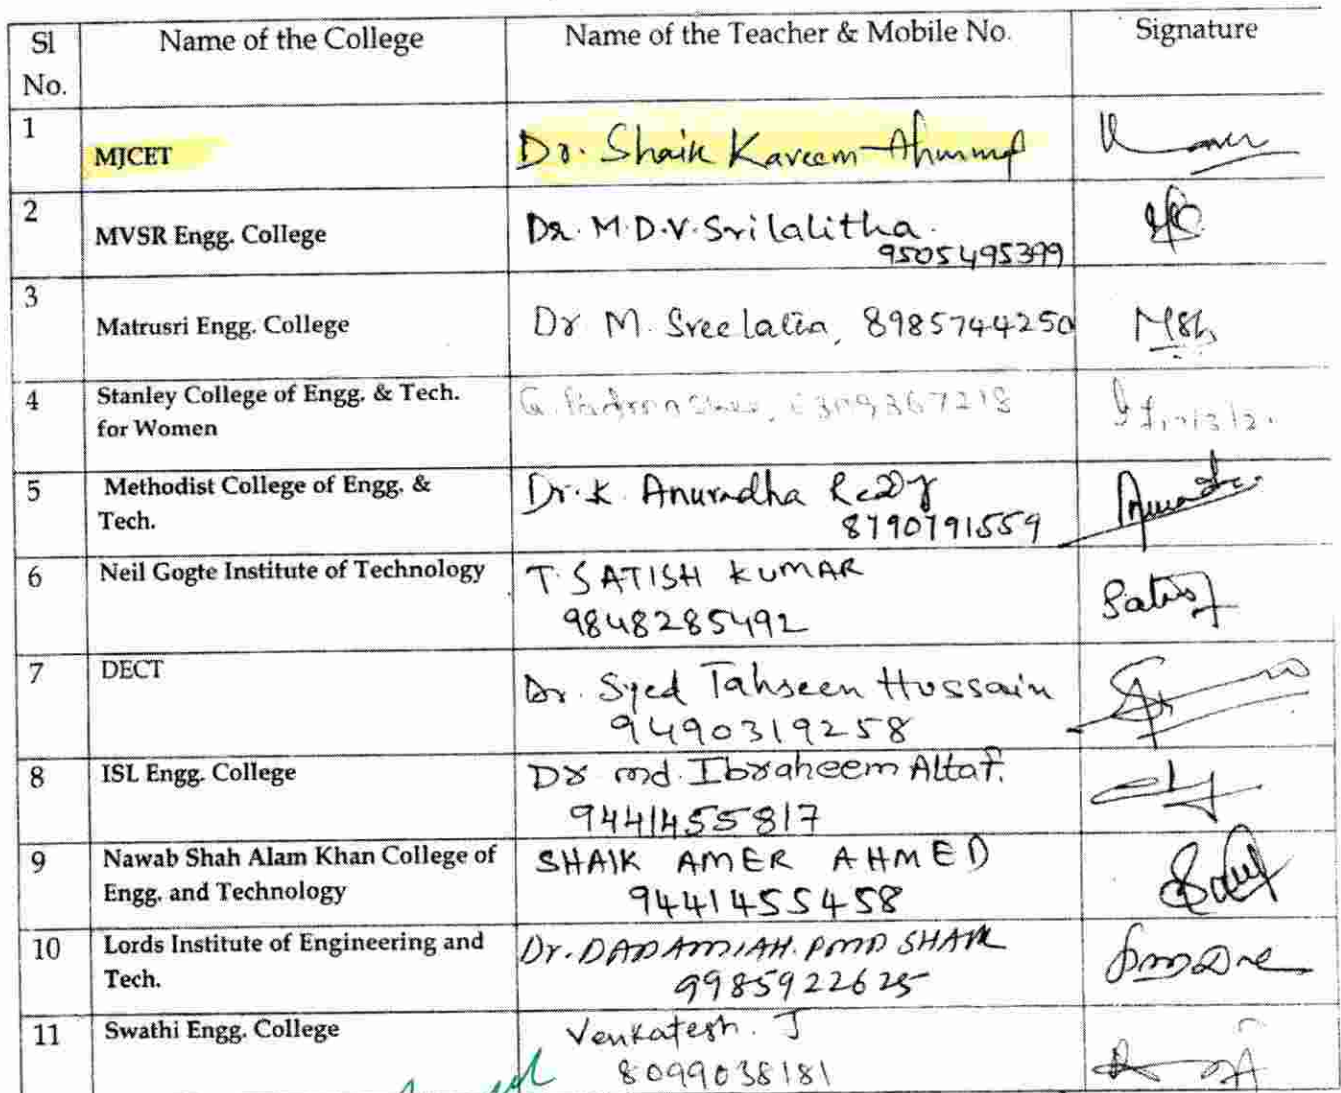 Sl No. Name of the College Name of the Teacher & Mobile No. Signature
1 MJCET Dr. Shaik Kareem Ahmmed
2 MVSR Engg. College Dr. M.D.V. Srilalitha.
9505495399
3 Matrusri Engg. College Dr M. Sreelatha, 8985744250
4 Stanley College of Engg. & Tech.
for Women G.
5 Methodist College of Engg. &
Tech. Dr. K. Anuradha Reddy
8790791559
6 Neil Gogte Institute of Technology T. SATISH KUMAR
9848285492
7 DECT Dr. Syed Tahseen Hussain
9490319258
8 ISL Engg. College Dr md. Ibraheem Altaf.
9441455817
9 Nawab Shah Alam Khan College of
Engg. and Technology SHAIK AMER AHMED
9441455458
10 Lords Institute of Engineering and
Tech. Dr. DADAMIAH. PMD SHAIK
9985922625
11 Swathi Engg. College Venkatesh. J
8099038181